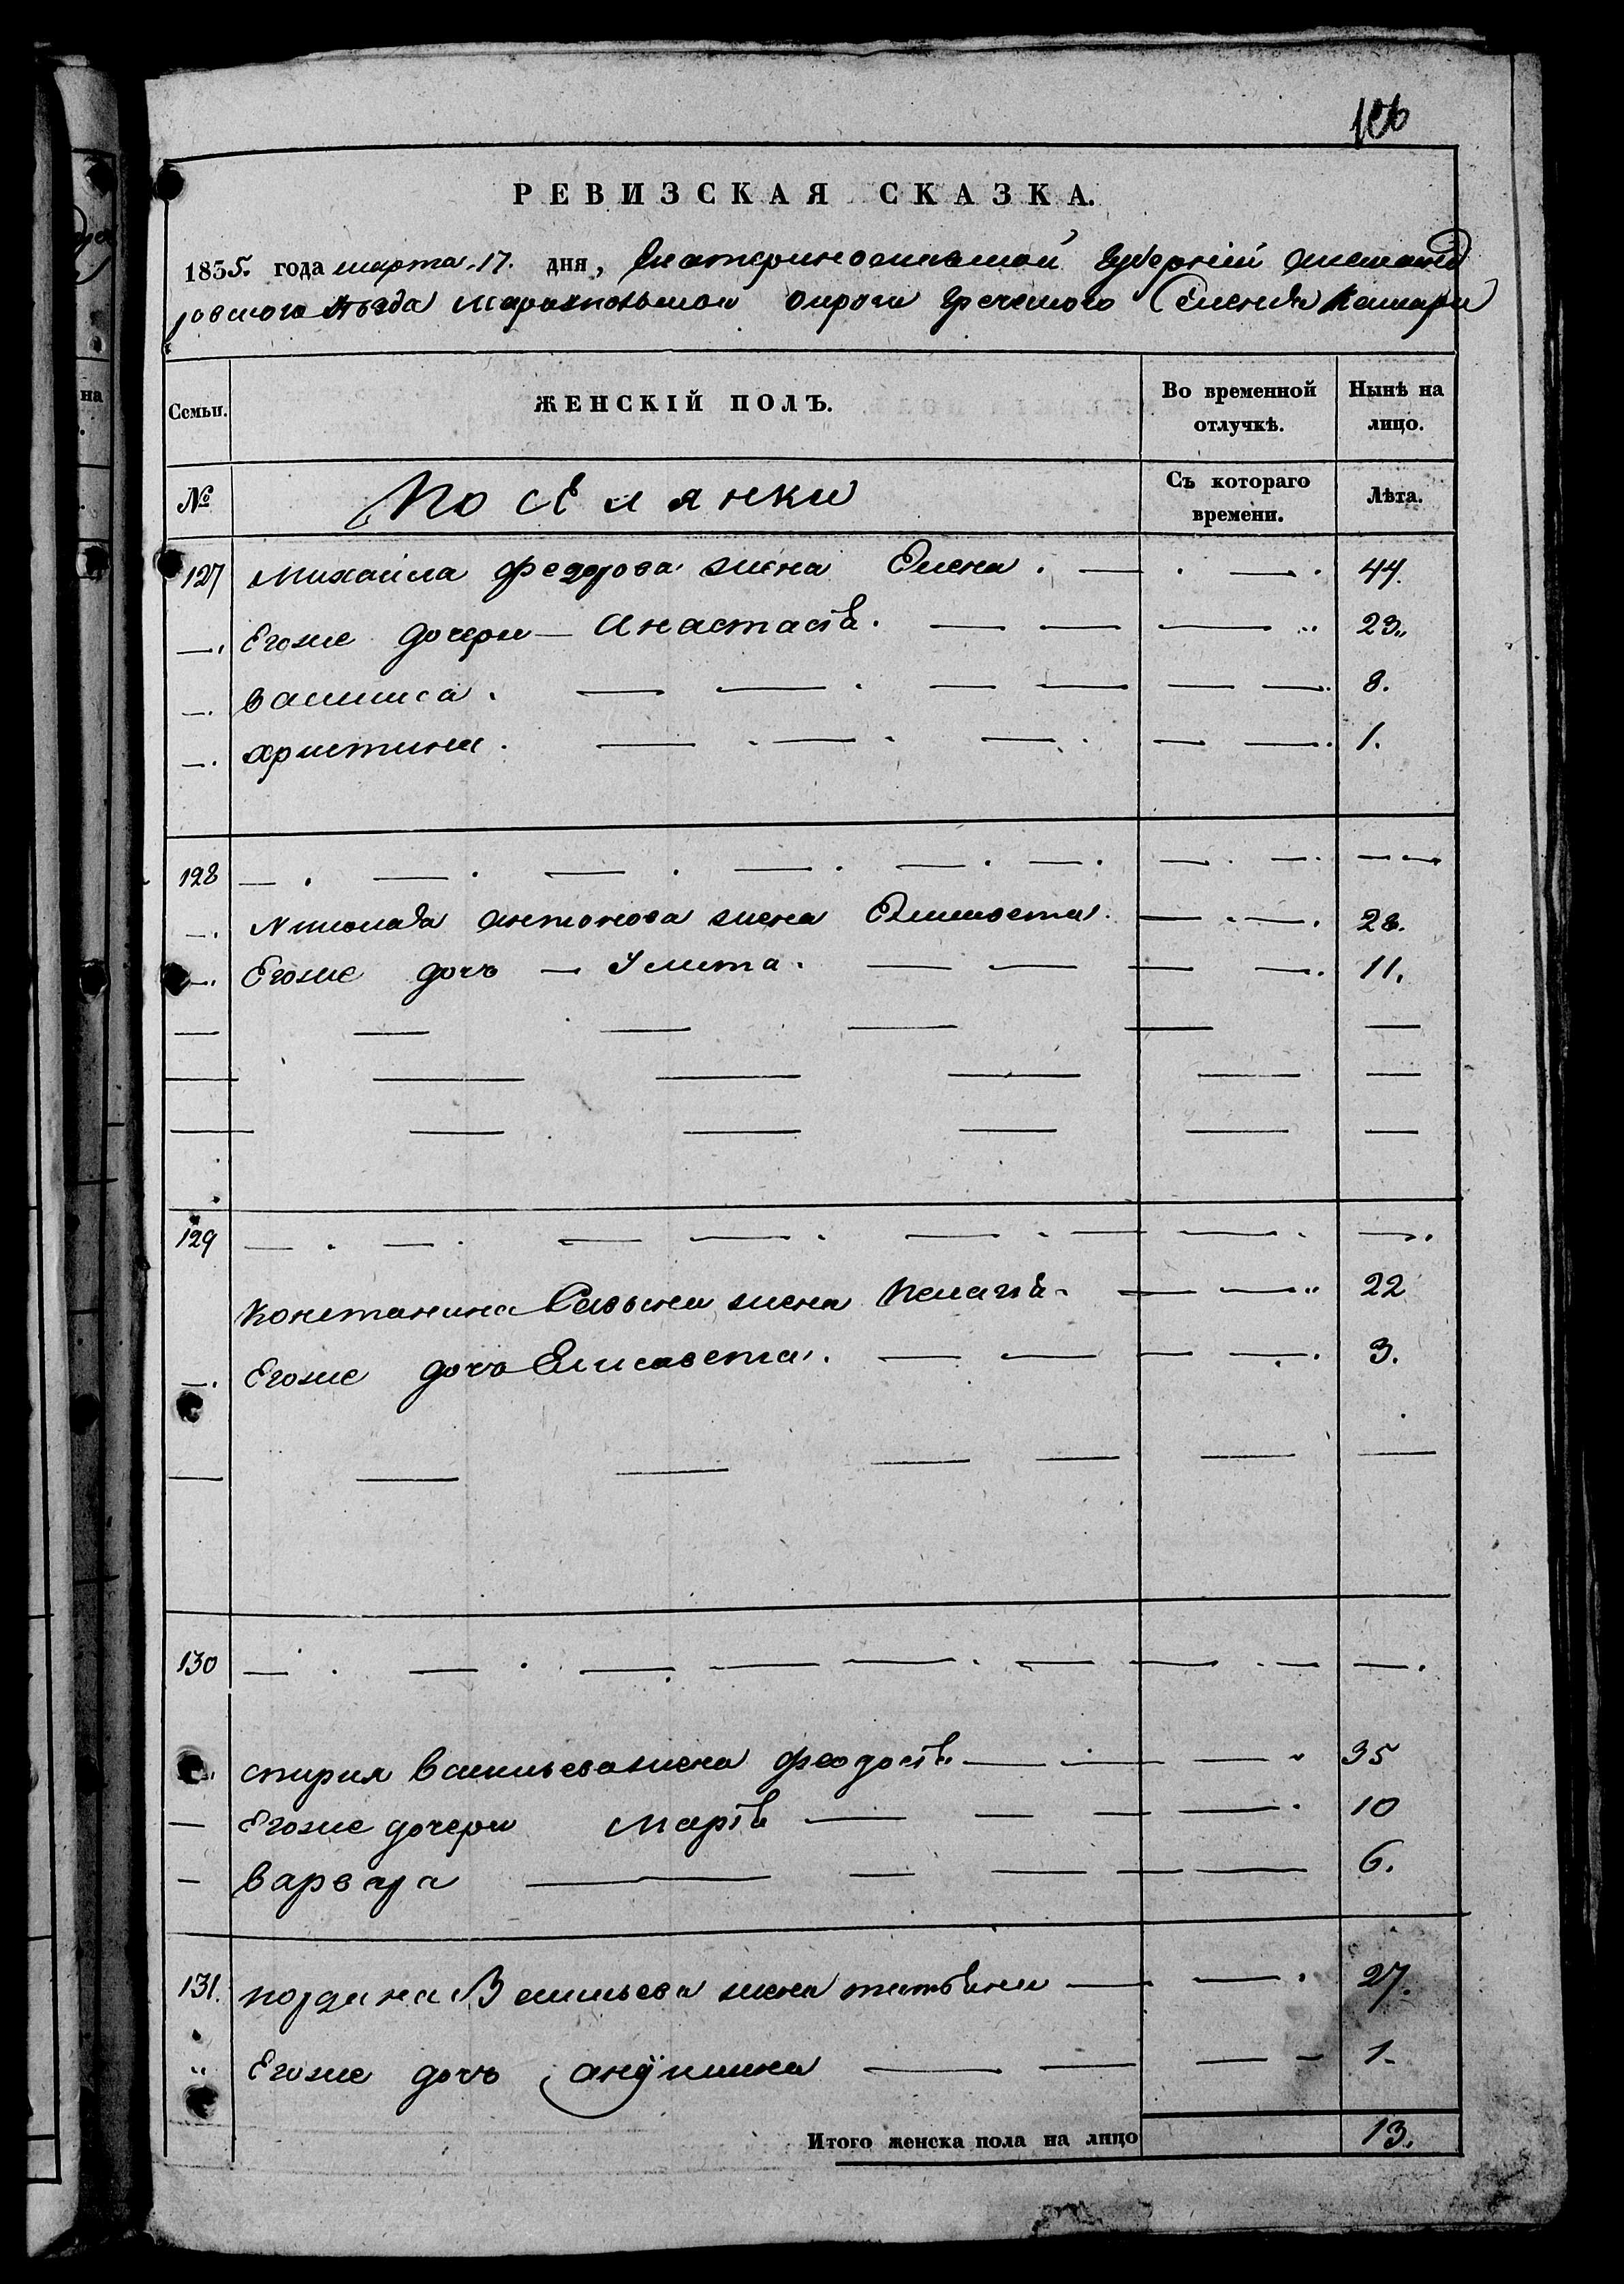 106
РЕВИЗСКАЯ СКАЗКА.
1835. года марта 17. дня, Екатеринославской Губерніи Александ
ровского уѣзда Мариупольского округа Греческого Селенія
Семьи. ЖЕНСКІЙ ПОЛЪ. Во временной отлучкѣ. Нынѣ на лицо.
№ Поселянки Съ котораго времени. Лѣта.
127 Михаила Федорова жена Елена. — . — . 44.
—. Егоже дочери — Анастасія. — — — .. 23.,
—. Василиса. — — . — — — —. 8.
—. Христина. — . — . — . — —. 1.
128 — . — . — . — . — . — . — . — . — —
—. Николая Антонова жена Елисавета. — . — . 28.
—. Егоже дочь — Улита. — — — —. 11.
— — — — — —
— — — — — —
— — — — — —
129 — . — . — — . — . — — . —.
Константина Савы жена Пелагія. — — .. 22
—. Егоже дочь Елисавета. — — — — . 3.
— — — — — — —
130 — . — . — — — . — — . — —.
—. Спиря Васильева жена Феодосія — — — 35
— Егоже дочери Марія — — — — . 10
— Варвара — — — — — 6.
131. Василева жена Татіана — — . 27.
" Егоже дочь — — — — 1.
Итого женска пола на лицо 13.